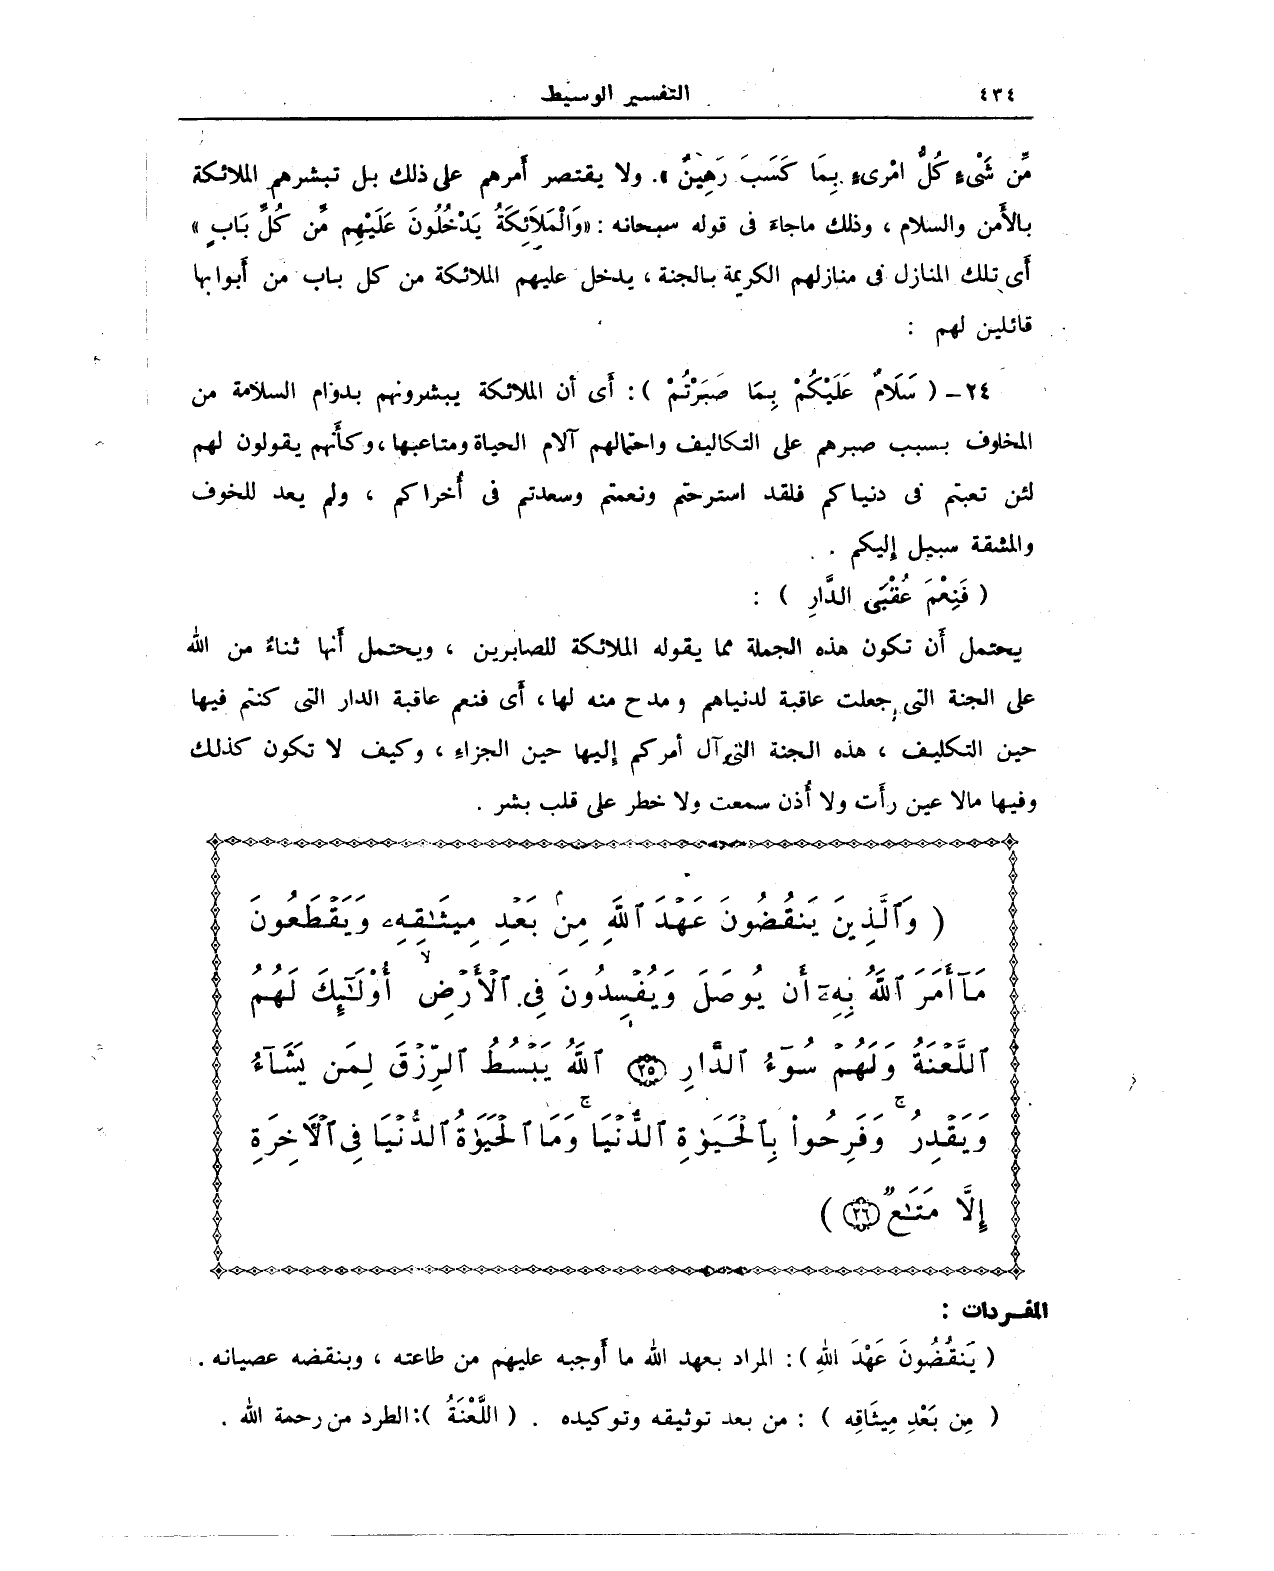 ٤٣٤ التفسير الوسيط
مِّن شَىْءٍ كُلُّ امْرِىءٍ بِمَا كَسَبَ رَهِينٌ ». ولا يقتصر أمرهم على ذلك بل تبشرهم الملائكة
بالأَمن والسلام ، وذلك ماجاءَ فى قوله سبحانه : «وَالْمَلَائِكَةُ يَدْخُلُونَ عَلَيْهِم مِّن كُلِّ بَابٍ »
أَى تلك المنازل فى منازلهم الكريمة بالجنة ، يدخل عليهم الملائكة من كل باب من أَبوابها
قائلين لهم :
٢٤ – ( سَلَامٌ عَلَيْكُمْ بِمَا صَبَرْتُمْ ) : أَى أَن الملائكة يبشرونهم بدوام السلامة من
المخاوف بسبب صبرهم على التكاليف واحتمالهم آلام الحياة ومتاعبها ، وكأَنهم يقولون لهم
لئن تعبتم فى دنياكم فلقد استرحتم ونعمتم وسعدتم فى أُخراكم ، ولم يعد للخوف
والمشقة سبيل إليكم .
( فَنِعْمَ عُقْبَى الدَّارِ ) :
يحتمل أَن تكون هذه الجملة مما يقوله الملائكة للصابرين ، ويحتمل أَنها ثناءٌ من الله
على الجنة التى جعلت عاقبة لدنياهم ومدح منه لها ، أَى فنعم عاقبة الدار التى كنتم فيها
حين التكليف ، هذه الجنة التى آل أمركم إليها حين الجزاءِ ، وكيف لا تكون كذلك
وفيها مالا عين رأَت ولا أُذن سمعت ولا خطر على قلب بشر .
( وَٱلَّذِينَ يَنقُضُونَ عَهْدَ ٱللَّهِ مِنۢ بَعْدِ مِيثَٰقِهِۦ وَيَقْطَعُونَ
مَآ أَمَرَ ٱللَّهُ بِهِۦٓ أَن يُوصَلَ وَيُفْسِدُونَ فِى ٱلْأَرْضِ ۙ أُو۟لَٰٓئِكَ لَهُمُ
ٱللَّعْنَةُ وَلَهُمْ سُوٓءُ ٱلدَّارِ ﴿٢٥﴾ ٱللَّهُ يَبْسُطُ ٱلرِّزْقَ لِمَن يَشَآءُ
وَيَقْدِرُ ۚ وَفَرِحُوا۟ بِٱلْحَيَوٰةِ ٱلدُّنْيَا ۚ وَمَا ٱلْحَيَوٰةُ ٱلدُّنْيَا فِى ٱلْأَخِرَةِ
إِلَّا مَتَٰعٌ ﴿٢٦﴾ )
المفردات :
( يَنقُضُونَ عَهْدَ اللهِ ) : المراد بعهد الله ما أَوجبه عليهم من طاعته ، وبنقضه عصيانه .
( مِن بَعْدِ مِيثَاقِهِ ) : من بعد توثيقه وتوكيده . ( اللَّعْنَةُ ) : الطرد من رحمة الله .